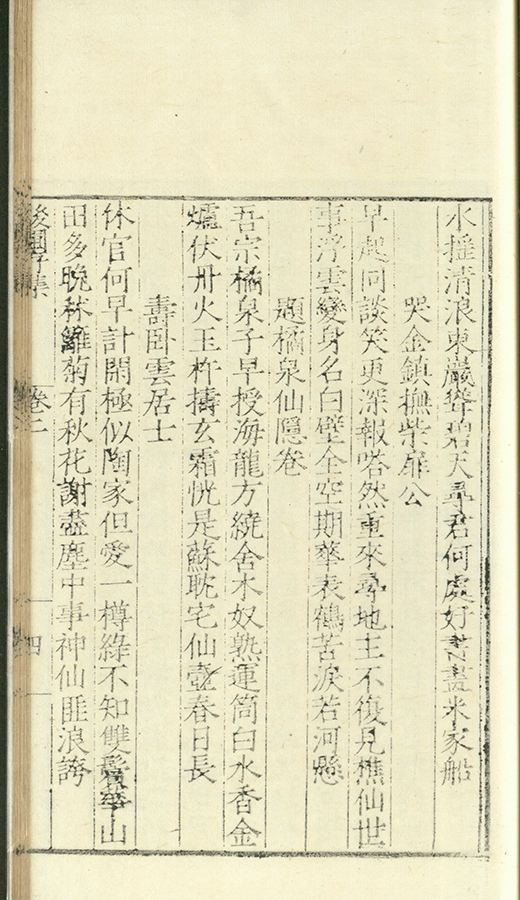 水搖清浪東巖聳碧天尋君何處好書畫米家船
哭金鎮撫柴扉公
早起同談笑更深報嗒然重來尋地主不復見樵仙世
事浮雲變身名白璧全空期華表鶴苦淚若河懸
題橘泉仙隱卷
吾宗橘泉子早授海龍方繞舍木奴熟連筒白水香金
爐伏丹火玉杵擣玄霜恍是蘇耽宅仙壺春日長
壽卧雲居士
休官何早計閒極似陶家但愛一樽綠不知雙鬢華山
田多晚秫籬菊有秋花謝盡塵中事神仙匪浪誇
卷二
四